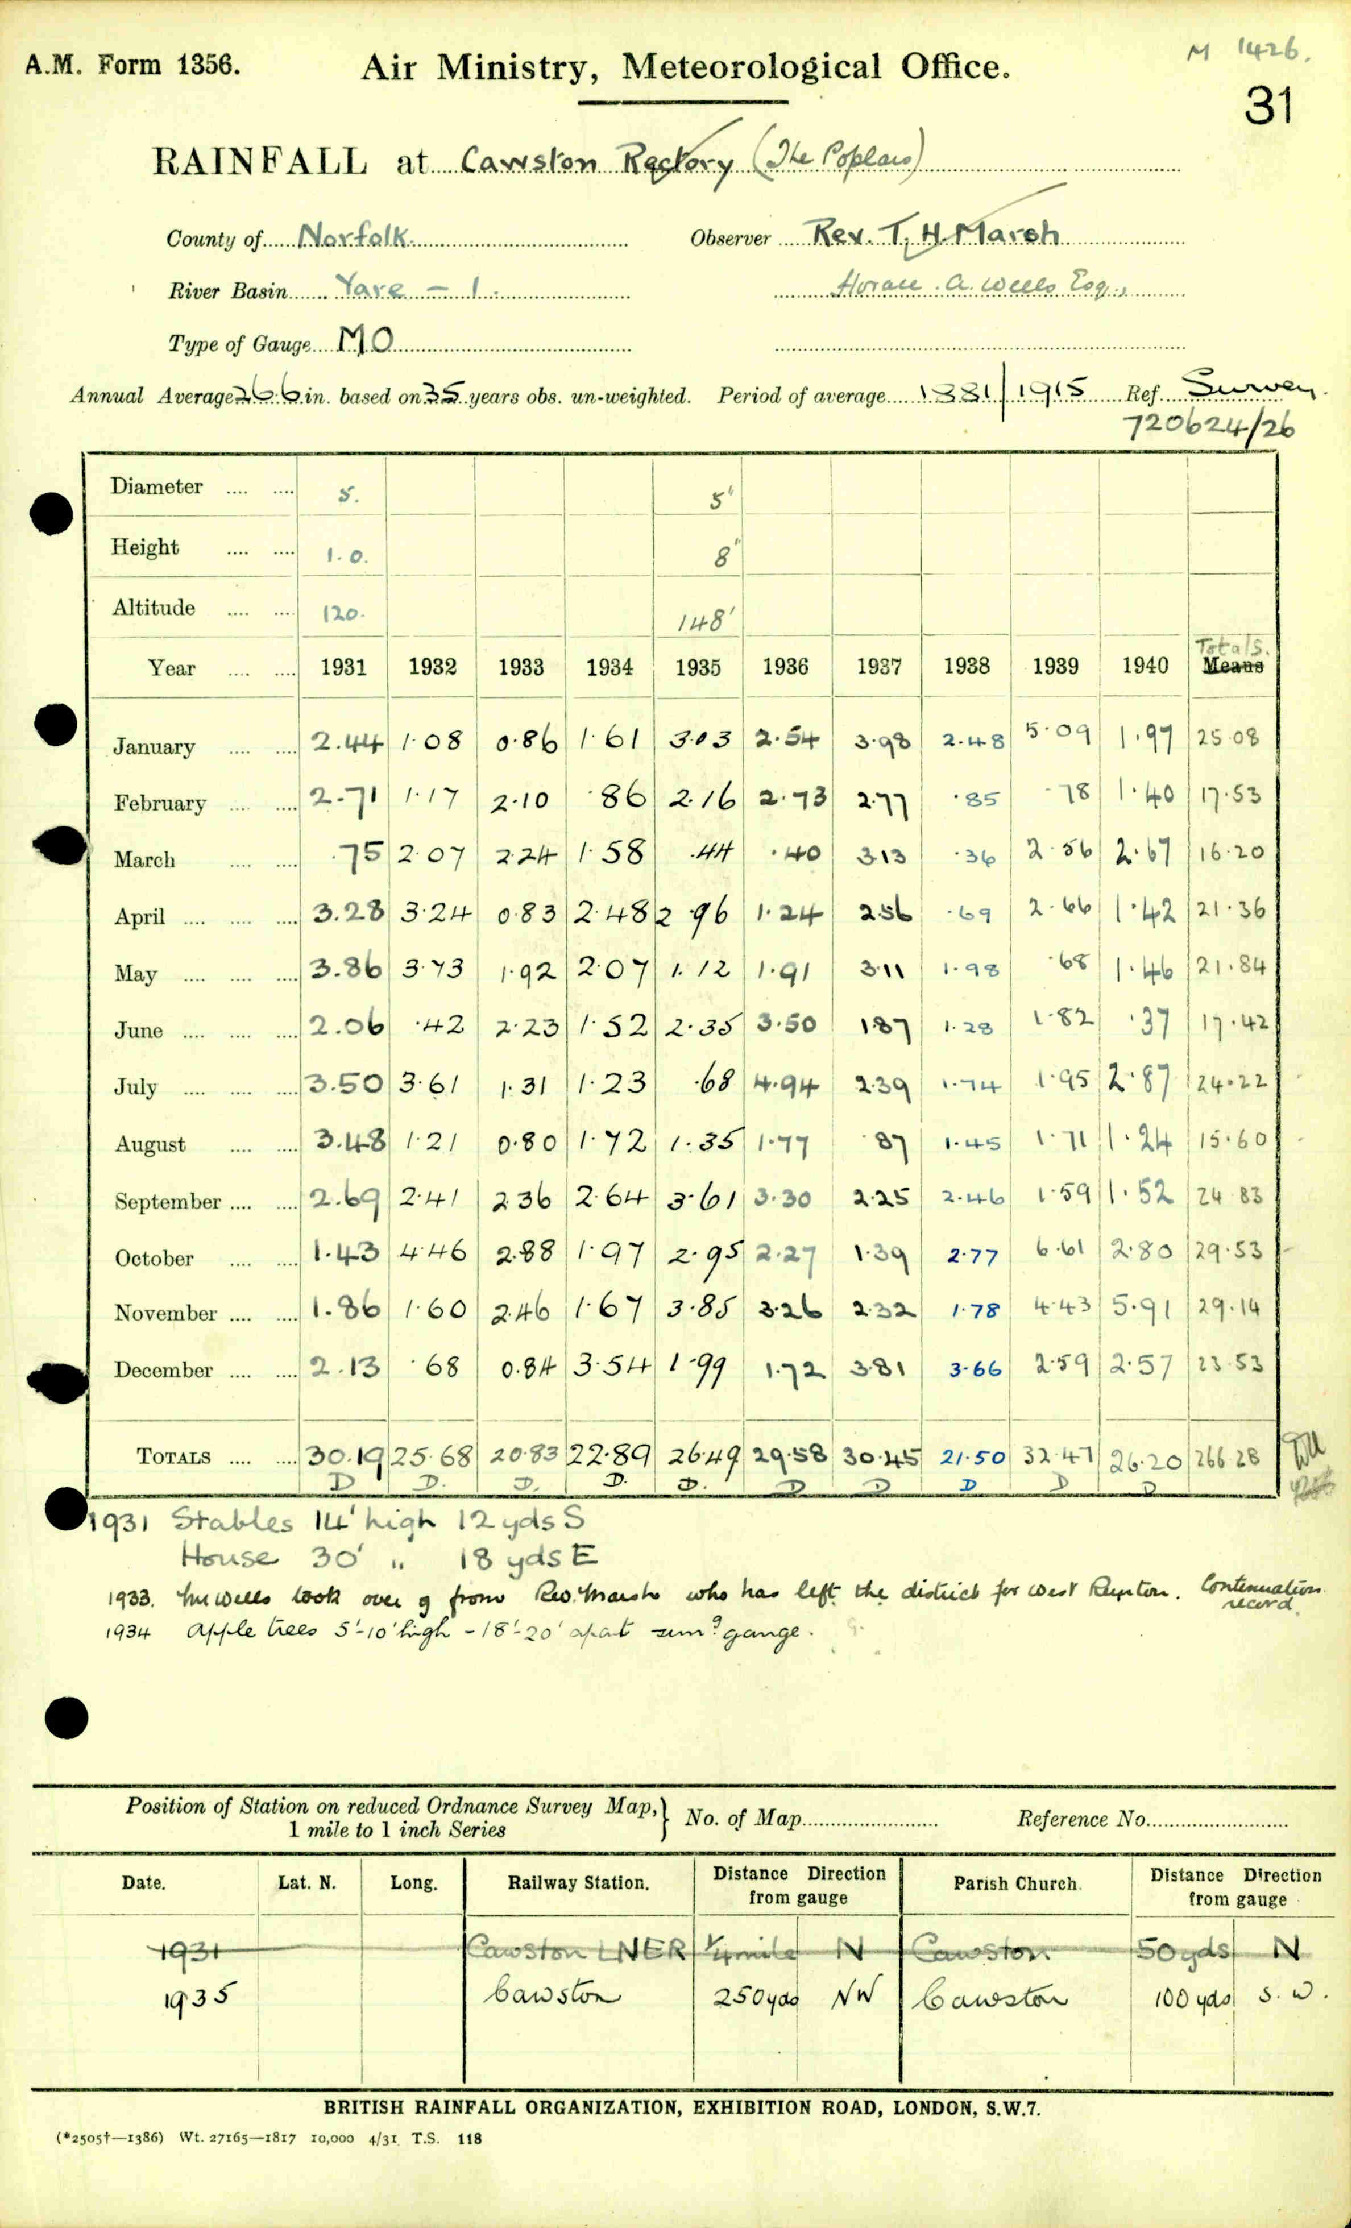 M 1426.
A.M. Form 1356. Air Ministry, Meteorological Office.
31
RAINFALL at Cawston Rectory (The Poplars)
County of Norfolk. Observer Rev. T. H. Marsh
River Basin Yare - 1. Horace. A. Wells Esq.,
Type of Gauge MO
Annual Average 26.6 in. based on 35 years obs. un-weighted. Period of average 1881/1915 Ref. Survey
720624/26
Diameter .... .... 5. 5"
Height .... .... 1.0. 8"
Altitude .... .... 120. 148'
Totals.
Year .... .... 1931 1932 1933 1934 1935 1936 1937 1938 1939 1940 Means
January .... .... 2.44 1.08 0.86 1.61 3.03 2.54 3.98 2.48 5.09 1.97 25.08
February .... .... 2.71 1.17 2.10 .86 2.16 2.73 2.77 .85 .78 1.40 17.53
March .... .... .75 2.07 2.24 1.58 .44 .40 3.13 .36 2.56 2.67 16.20
April .... .... .... 3.28 3.24 0.83 2.48 2.96 1.24 2.56 .69 2.66 1.42 21.36
May .... .... .... 3.86 3.73 1.92 2.07 1.12 1.91 3.11 1.98 .68 1.46 21.84
June .... .... .... 2.06 .42 2.23 1.52 2.35 3.50 1.87 1.28 1.82 .37 17.42
July .... .... .... 3.50 3.61 1.31 1.23 .68 4.94 2.39 1.74 1.95 2.87 24.22
August .... .... 3.48 1.21 0.80 1.72 1.35 1.77 .87 1.45 1.71 1.24 15.60
September .... .... 2.69 2.41 2.36 2.64 3.61 3.30 2.25 2.46 1.59 1.52 24.83
October .... .... 1.43 4.46 2.88 1.97 2.95 2.27 1.39 2.77 6.61 2.80 29.53
November .... .... 1.86 1.60 2.46 1.67 3.85 3.26 2.32 1.78 4.43 5.91 29.14
December .... .... 2.13 .68 0.84 3.54 1.99 1.72 3.81 3.66 2.59 2.57 23.53
TOTALS .... .... 30.19 25.68 20.83 22.89 26.49 29.58 30.45 21.50 32.47 26.20 266.28
D D. D. D. D. D D D D D
1931 Stables 14' high 12 yds S
House 30' " 18 yds E
1933. Mr Wells took over g from Rev. Marsh who has left the district for West Runton. Continuation record.
1934 Apple trees 5'-10' high - 18'-20' apart surrg gauge.
Position of Station on reduced Ordnance Survey Map, 1 mile to 1 inch Series } No. of Map Reference No.
Date. Lat. N. Long. Railway Station. Distance Direction from gauge Parish Church. Distance Direction from gauge
1931 Cawston LNER 1/4 mile N Cawston 50 yds N
1935 Cawston 250 yds NW Cawston 100 yds S.W.
BRITISH RAINFALL ORGANIZATION, EXHIBITION ROAD, LONDON, S.W.7.
(*2505†—1386) Wt. 27165—1817 10,000 4/31 T.S. 118